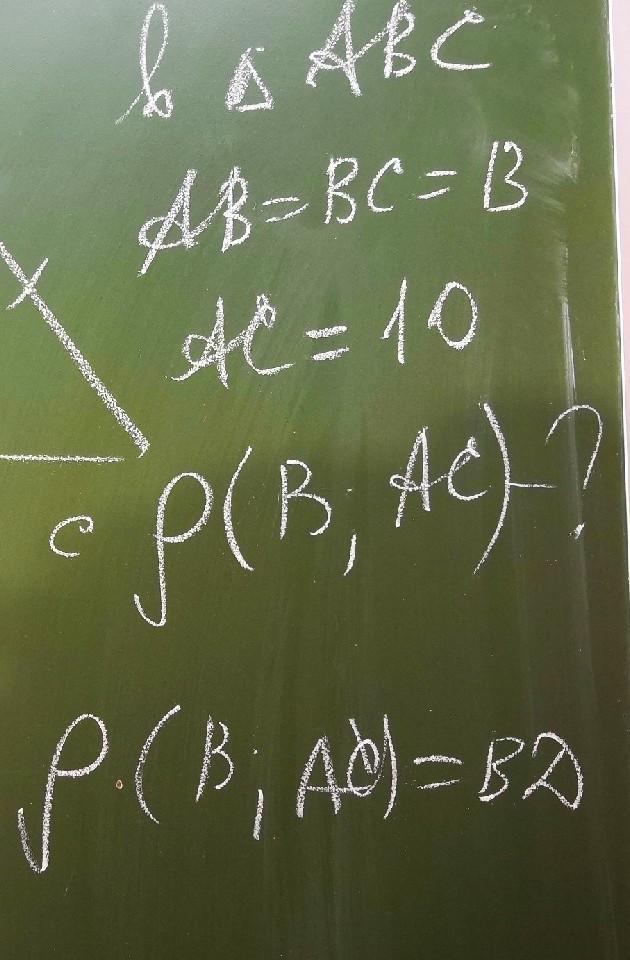 В △ ABC
AB=BC=B
AC=10
C
ρ(B; AC)-?
ρ(B; AC)=BD